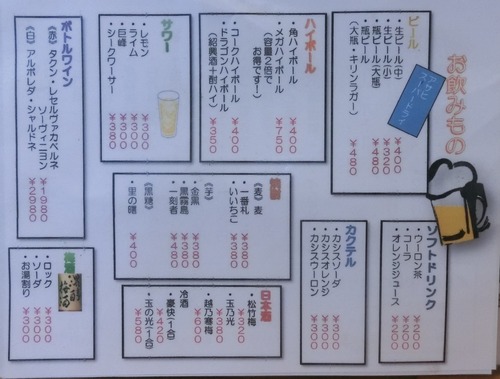 お飲みもの
ビール
アサヒ
スーパードライ
・生ビール(中) ¥400
・生ビール(小) ¥320
・瓶ビール(大瓶) ¥480
・瓶ビール ¥480
(大瓶・キリンラガー)
ハイボール
・角ハイボール ¥400
・メガハイボール ¥750
(容量2倍で
お得です!)
・コークハイボール ¥400
・ドラゴンハイボール ¥350
(紹興酒+酎ハイ)
サワー
・レモン ¥300
・ライム ¥300
・巨峰 ¥300
・シークワーサー ¥380
ボトルワイン
《赤》タクン・レセルヴァカベルネ
ソーヴィニヨン ¥1980
《白》アルボレダ・シャルドネ ¥2980
ソフトドリンク
・ウーロン茶 ¥200
・コーラ ¥200
・オレンジジュース ¥200
カクテル
・カシスソーダ ¥300
・カシスオレンジ ¥300
・カシスウーロン ¥300
焼酎
《麦》麦
・一番札 ¥380
・いいちこ ¥380
《芋》
・金黒 ¥380
・黒霧島 ¥380
・一刻者 ¥480
《黒糖》
・里の曙 ¥400
日本酒
・松竹梅 ¥320
・玉乃光 ¥420
・越乃寒梅 ¥600
冷酒
・豪快(1合) ¥420
・玉の光(1合) ¥580
梅酒
・ロック ¥300
・ソーダ ¥300
・お湯割り ¥300